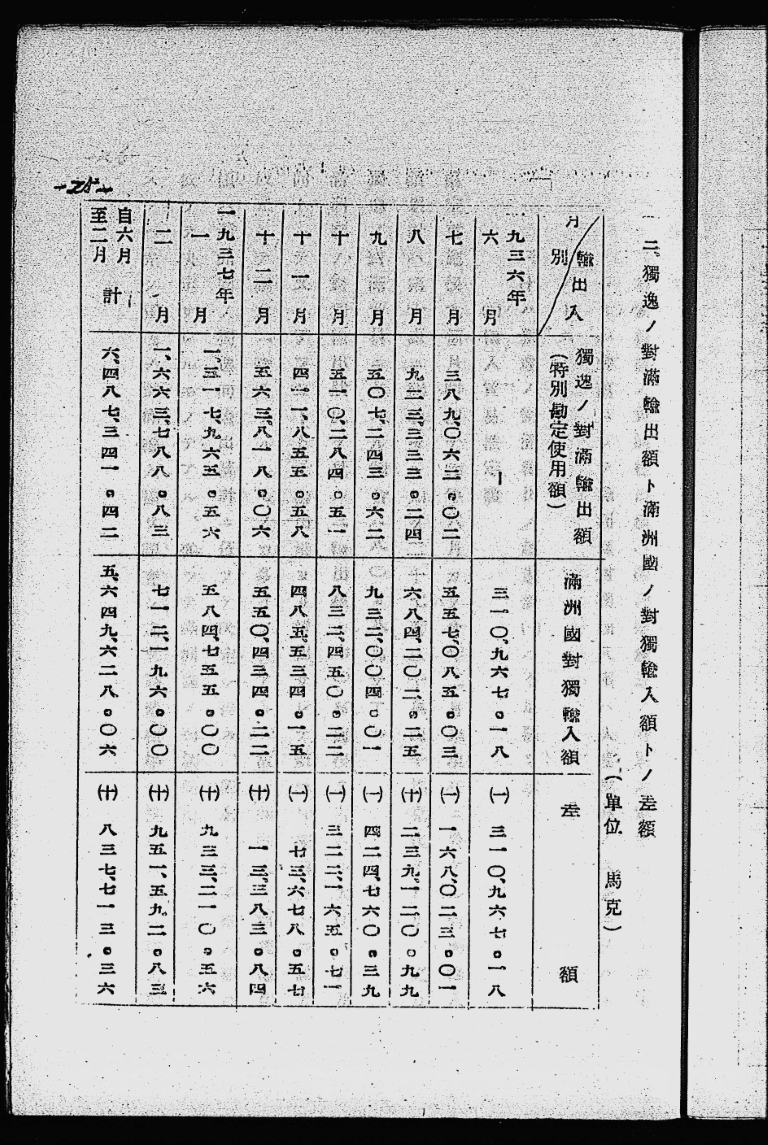 二、獨逸ノ對滿輸出額ト滿洲國ノ對獨輸入額トノ差額
(單位 馬克)
月別 輸出入
獨逸ノ對滿輸出額
(特別勘定使用額)
滿洲國對獨輸入額
差額
九三六年
六月 — 三一〇、九六七。一八 (一) 三一〇、九六七。一八
七月 三八九、〇六二。〇二 五五七、〇八五。〇三 (一) 一六八、〇二三。〇一
八月 九二三、三三三。二四 六八四、二〇二。二五 (十) 二三九、一二〇。九九
九月 五〇七、二四三。六二 九三二、〇〇四。〇一 (一) 四二四、七六〇。三九
十月 五一〇、二八四。五一 八三二、四五〇。二二 (一) 三二二、一六五。七一
十一月 四一一、八五五。五八 四八五、五三四。一五 (一) 七三、六七八。五七
十二月 五六三、八一八。〇六 五五〇、四三四。二二 (十) 一三、三八三。八四
一九三七年
一月 一、五一七、九六五。五六 五八四、七五五。〇〇 (十) 九三三、二一〇。五六
二月 一、六六三、七八八。八三 七一二、一九六。〇〇 (十) 九五一、五九二。八三
自六月
至二月 計 六、四八七、三四一。四二 五、六四九、六二八。〇六 (十) 八三七、七一三。三六
-25-